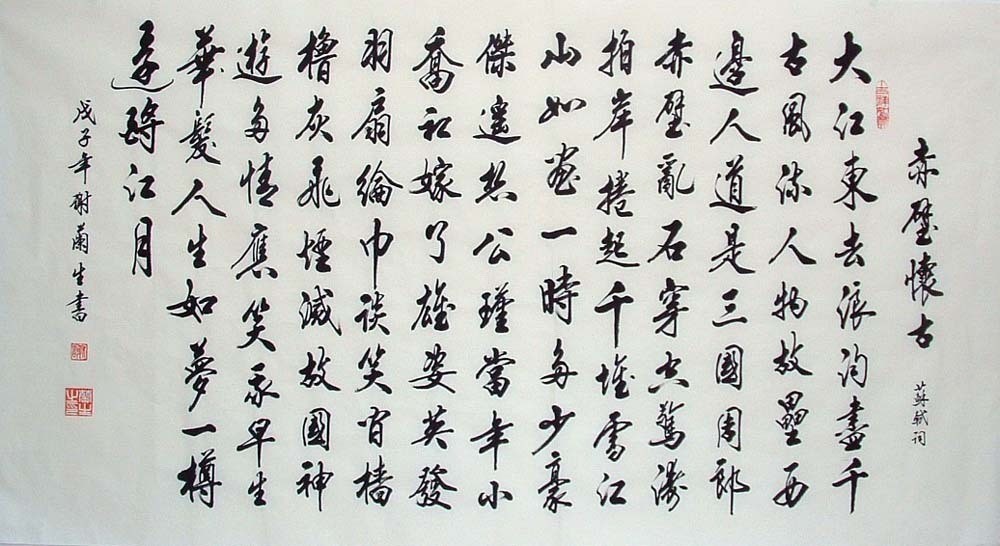 赤壁懷古
蘇軾詞
大江東去浪淘盡千
古風流人物故壘西
邊人道是三國周郎
赤壁亂石穿空驚濤
拍岸捲起千堆雪江
山如畫一時多少豪
傑遙想公瑾當年小
喬初嫁了雄姿英發
羽扇綸巾談笑間檣
櫓灰飛煙滅故國神
遊多情應笑我早生
華髮人生如夢一樽
還酹江月
戊子年謝蘭生書